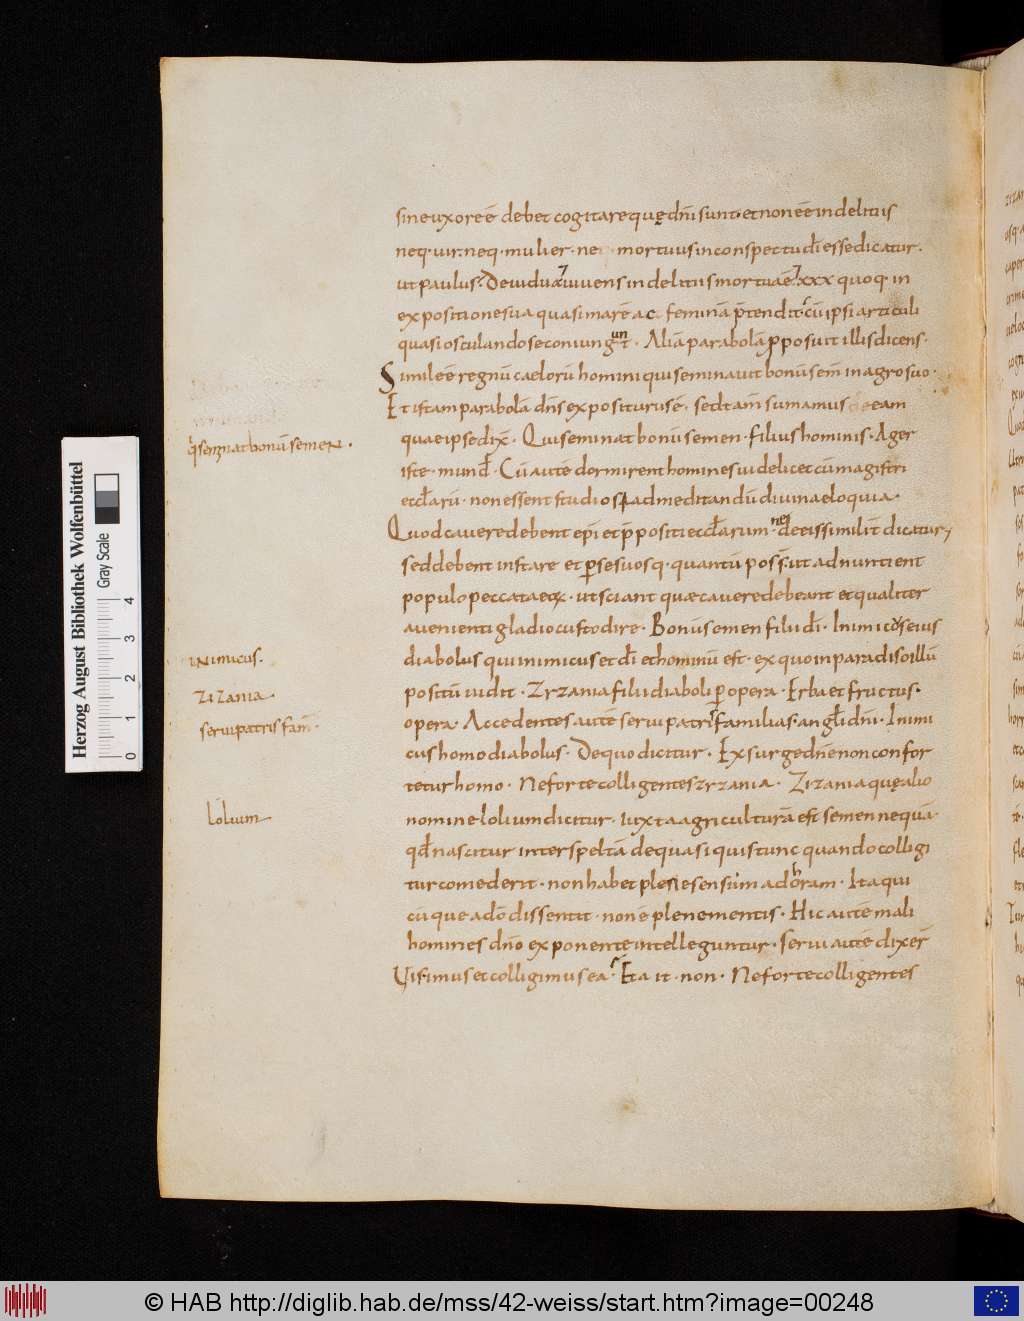 sine uxore ē debet cogitare quę dn̄i sunt· et non ēē in delitiis
neq· uir· neq· mulier· ne mortuus in conspectu dī esse dicatur·
ut paulus· De uidua uiuens in delitiis mortua ē· xxx quoq· in
expositione sua quasi mare ac feminā p̄tendit· cū ipsi articuli
quasi osculando se coniungunt· Aliā parabolā proposuit illis dicens·
Simile ē regnū caelorū homini qui seminauit bonū sem̄ in agro suo·
Et istam parabolā dn̄s expositurus ē· sed tam̄ sumamus eam
q seminat bonū semen·
quae ipse dix̄· Qui seminat bonū semen· filius hominis· Ager
iste· mund· Cū autē dormirent homines uidelicet cū magistri
eccłarū· non essent studiosi ad meditandū diuina eloquia·
Quod cauere debent ep̄i et p̄positi eccłarum· ne de eis similit̄ dicatur
sed debent instare et per se suosq· quantū poss̄ ut adnuntient
populo peccata eoꝝ· ut sciant quae cauere debeant et qualiter
a uenienti gladio custodire· Bonū semen filii dī· Inimicus eius
inimicus·
diabolus qui inimicus et dī et hominū est· ex quo in paradiso illū
zizania
positū uidit· Zizania filii diaboli per opera· Erba et fructus·
serui patris fam̄·
opera· Accedentes autē serui patris familias· angłi dn̄i· Inimi
cus homo diabolus· De quo dicitur· Exsurge dn̄e non confor
tetur homo· Ne forte colligentes zizania· Zizania quę alio
lolium
nomine lolium dicitur· iuxta agriculturā est semen nequā·
qd nascitur inter speltā de qua si quis tunc quando colligi
tur comederit· non habet plenie sensum ad horam· Ita qui
cūque a dō dissentit· non ē plene mentis· Hic autē mali
homines dn̄o exponente intelleguntur· serui autē dixer̄
Uis imus et colligimus ea· Et ait· non· Ne forte colligentes
Herzog August Bibliothek Wolfenbüttel
Gray Scale
0 1 2 3 4
© HAB http://diglib.hab.de/mss/42-weiss/start.htm?image=00248